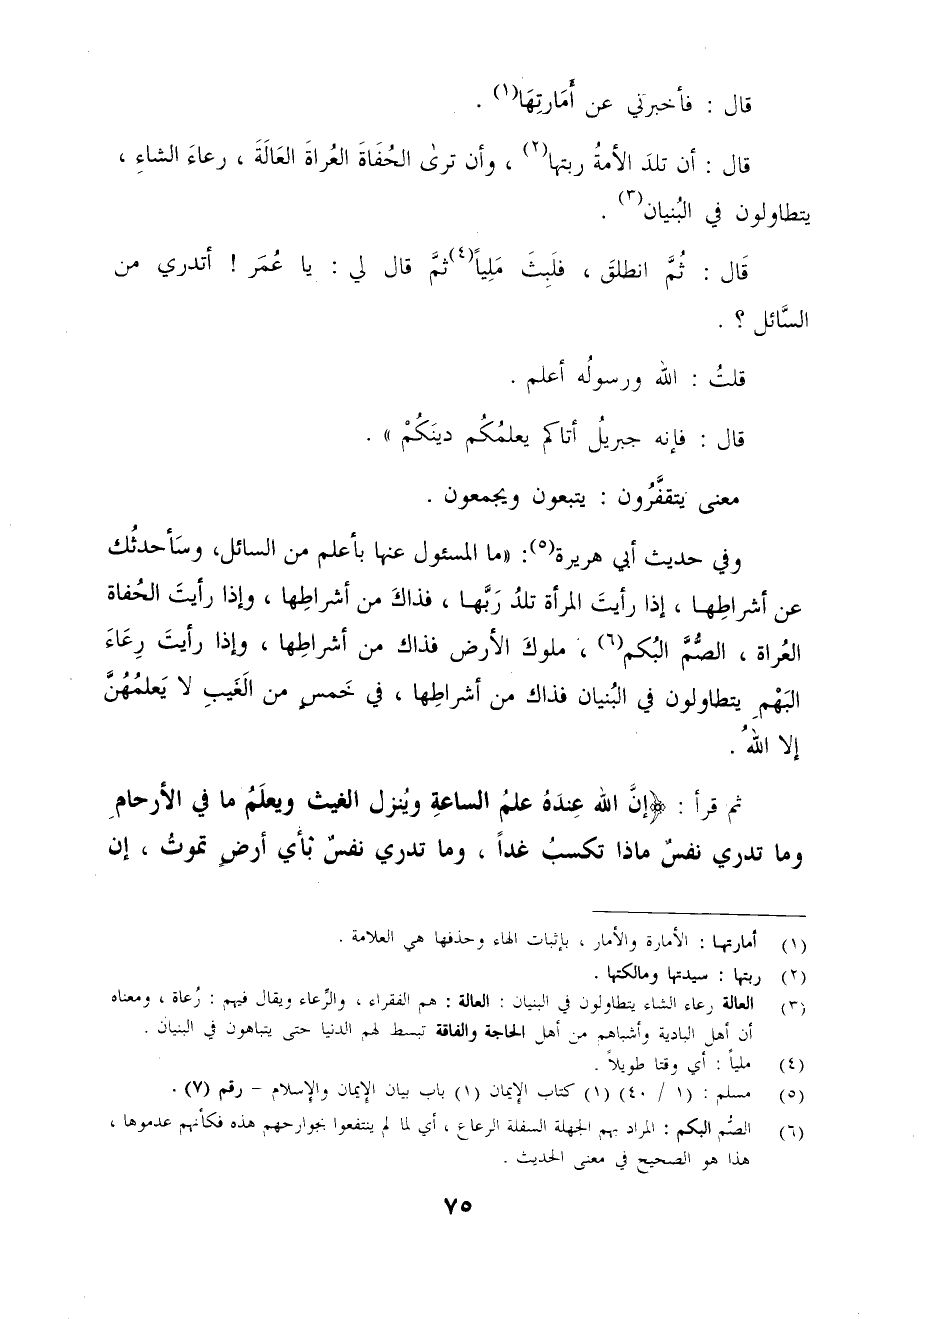 قال : فأخبرني عن أَمَارتِهَا(١) .
قال : أن تلدَ الأمةُ ربتها(٢) ، وأن ترىٰ الحُفَاةَ العُراةَ العَالَةَ ، رعاءَ الشاءِ ،
يتطاولون في البُنيان(٣) .
قَال : ثُمَّ انطلقَ ، فلَبِثَ مَلِياً(٤) ثمَّ قال لي : يا عُمَر ! أتدري من
السَّائل ؟ .
قلتُ : الله ورسولُه أعلم .
قال : فإنه جبريلُ أتاكم يعلمُكُم دينَكُمْ » .
معنى يتقفَّرُون : يتبعون ويجمعون .
وفي حديث أبي هريرة(٥) : «ما المسئول عنها بأعلم من السائل، وسَأحدثُك
عن أشراطِها ، إذا رأيتَ المرأة تلدُ ربَّها ، فذاكَ من أشراطِها ، وإذا رأيتَ الحُفاة
العُراة ، الصُّمَّ البُكم(٦) ، ملوكَ الأرض فذاك من أشراطِها ، وإذا رأيتَ رِعَاءَ
البَهْمِ يتطاولون في البُنيان فذاك من أشراطِها ، في خَمسٍ من الغَيبِ لا يَعلمُهُنَّ
إلا اللهُ .
ثم قرأ : ﴿إنَّ الله عِندَهُ علمُ الساعةِ ويُنزل الغيث ويعلَمُ ما في الأرحامِ
وما تدري نفسٌ ماذا تكسبُ غداً ، وما تدري نفسٌ بأي أرضٍ تموتُ ، إن
(١) أمارتها : الأمارة والأمار ، بإثبات الهاء وحذفها هي العلامة .
(٢) ربتها : سيدتها ومالكتها .
(٣) العالة رعاء الشاء يتطاولون في البنيان : العالة : هم الفقراء ، والرِّعاء ويقال فيهم : رُعاة ، ومعناه
أن أهل البادية وأشباهم من أهل الحاجة والفاقة تبسط لهم الدنيا حتى يتباهون في البنيان .
(٤) ملياً : أي وقتا طويلاً .
(٥) مسلم : (١ / ٤٠) (١) كتاب الإيمان (١) باب بيان الإيمان والإسلام – رقم (٧) .
(٦) الصُّم البكم : المراد بهم الجهلة السفلة الرعاع ، أي لما لم ينتفعوا بجوارحهم هذه فكأنهم عدموها ،
هذا هو الصحيح في معنى الحديث .
٧٥